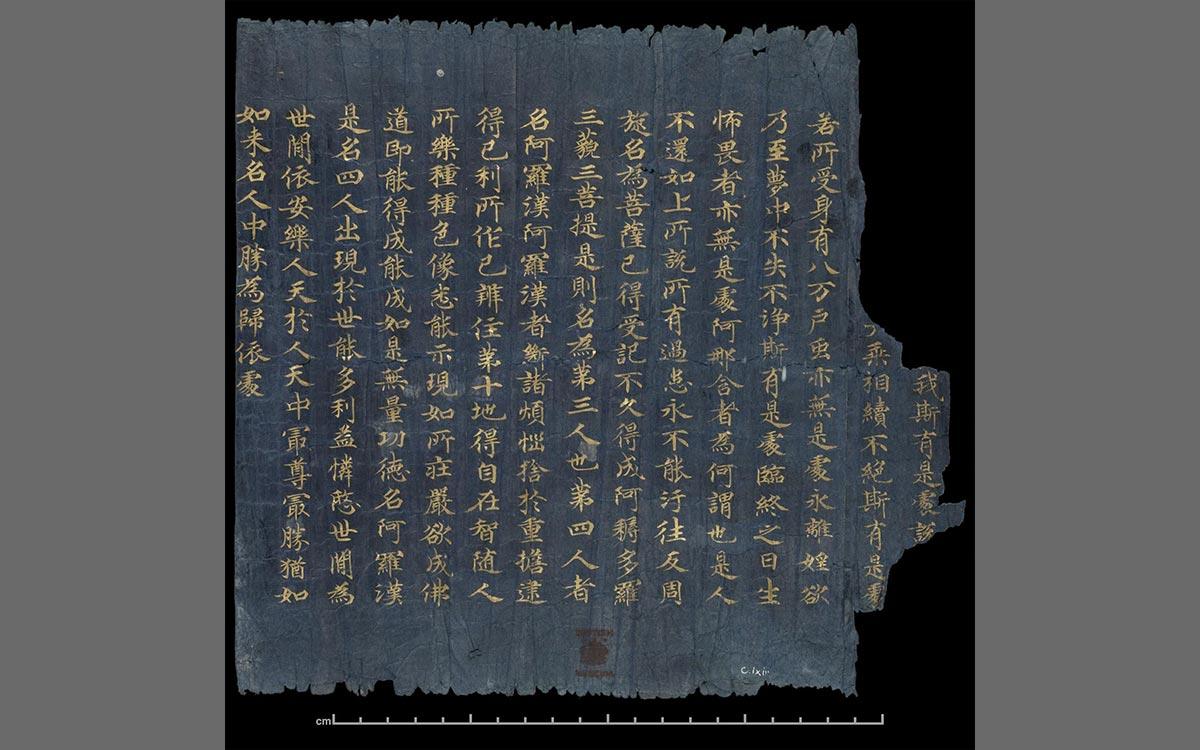 我斯有是處說
乘相續不絕斯有是處
若所受身有八万戶虫亦無是處永離婬欲
乃至夢中不失不淨斯有是處臨終之日生
怖畏者亦無是處阿那含者為何謂也是人
不還如上所說所有過患永不能汙往反周
旋名為菩薩已得受記不久得成阿耨多羅
三藐三菩提是則名為第三人也第四人者
名阿羅漢阿羅漢者斷諸煩惱捨於重擔逮
得已利所作已辦住第十地得自在智隨人
所樂種種色像悉能示現如所莊嚴欲成佛
道即能得成能成如是無量功德名阿羅漢
是名四人出現於世能多利益憐愍世間為
世間依安樂人天於人天中最尊最勝猶如
如来名人中勝為歸依處
C.lxiii
cm